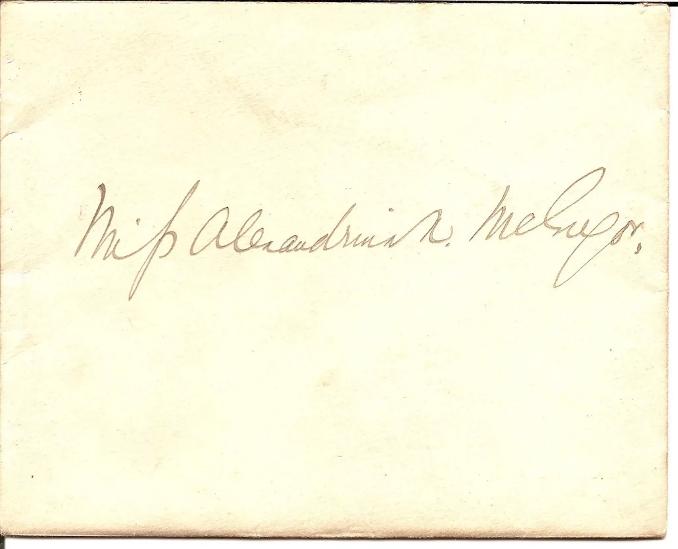 Miss Alexandrina McGregor,